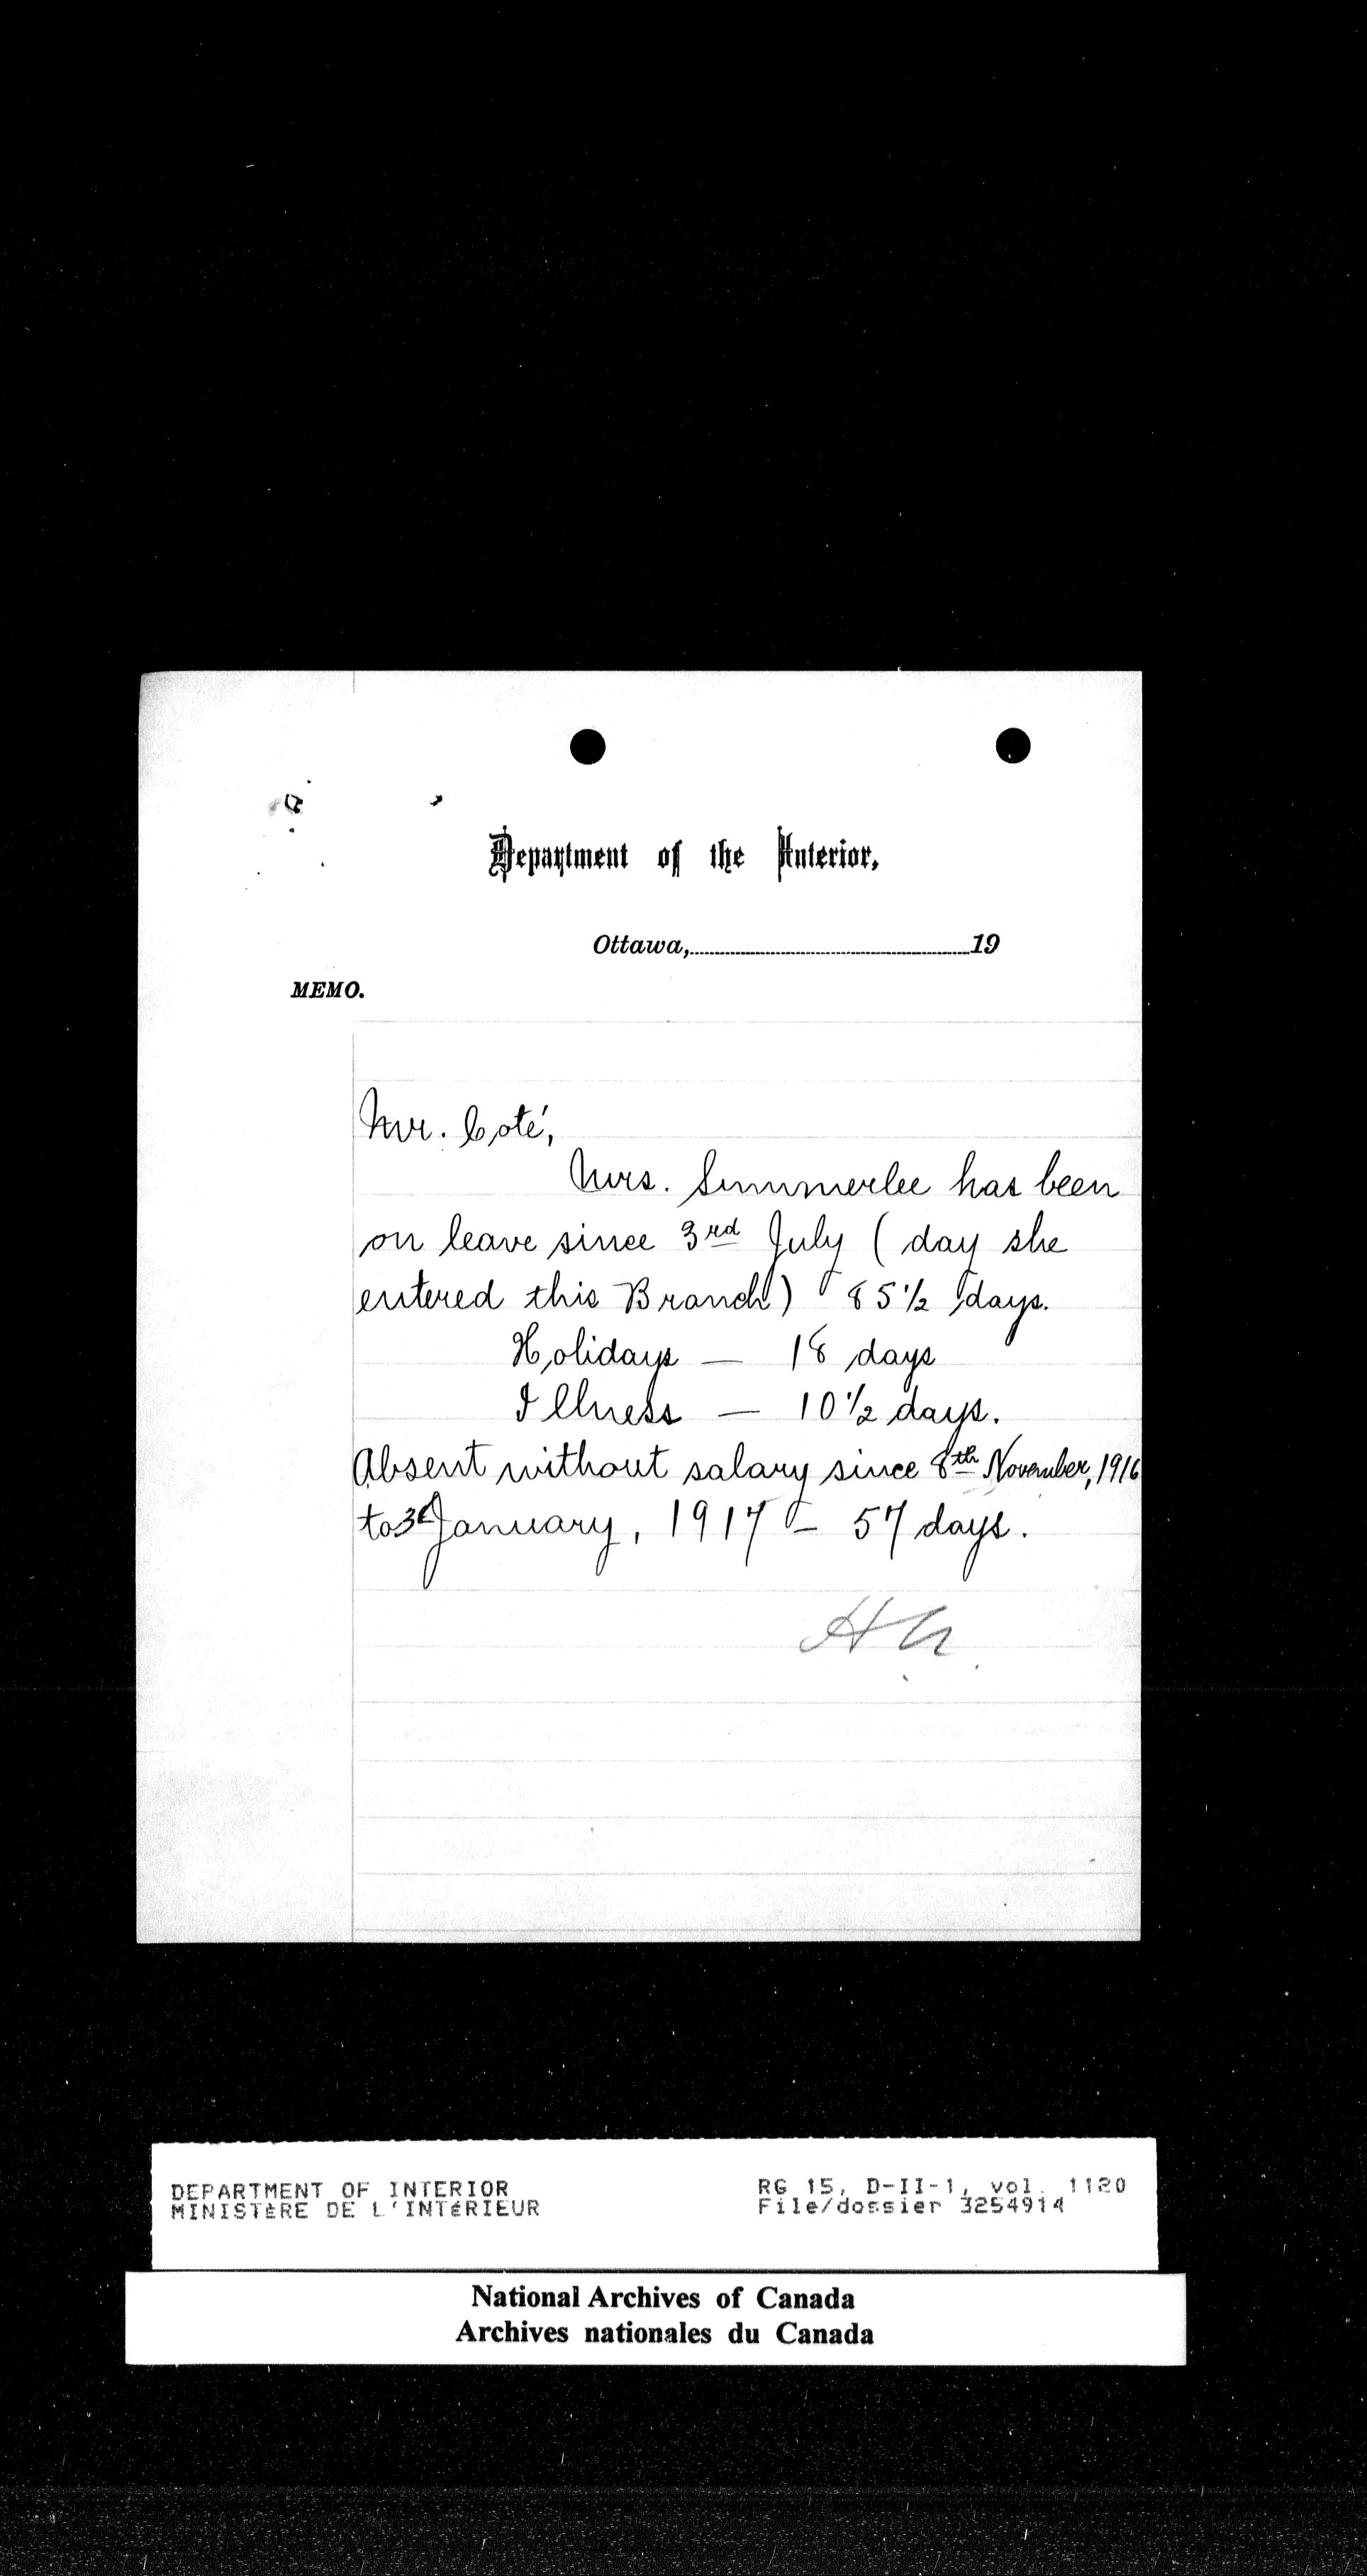 Department of the Interior,
Ottawa, 19
MEMO.
Mr. Coté,
Mrs. Summerlee has been
on leave since 3rd July ( day she
entered this Branch) 85 1/2 days.
Holidays — 18 days
Illness — 10 1/2 days.
Absent without salary since 8th November, 1916
to 3d January, 1917 — 57 days.
DEPARTMENT OF INTERIOR
MINISTÈRE DE L'INTÉRIEUR
RG 15, D-II-1, vol. 1120
File/dossier 3254914
National Archives of Canada
Archives nationales du Canada